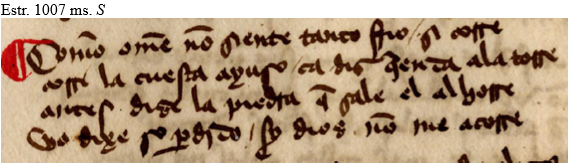 Estr. 1007 ms. S
Como ome nō siente tanto frio / si corre
corri la cuesta ayuso / ca diz quien da a la torre
antes dize la piedra q̄ sale el alhorre
yo dixe so perdido / sy dios nō me acorre